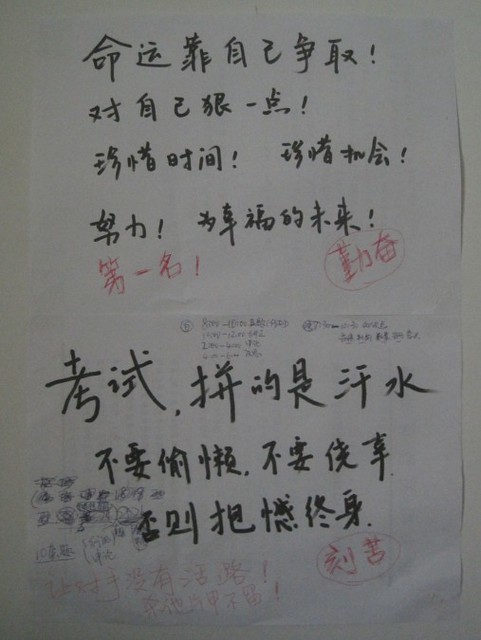 命运靠自己争取！
对自己狠一点！
珍惜时间！ 珍惜机会！
努力！ 为幸福的未来！
第一名！ 勤奋
考试，拼的是汗水
不要偷懒，不要侥幸
否则抱憾终身
刻苦
让对手没有活路！
杀他片甲不留！